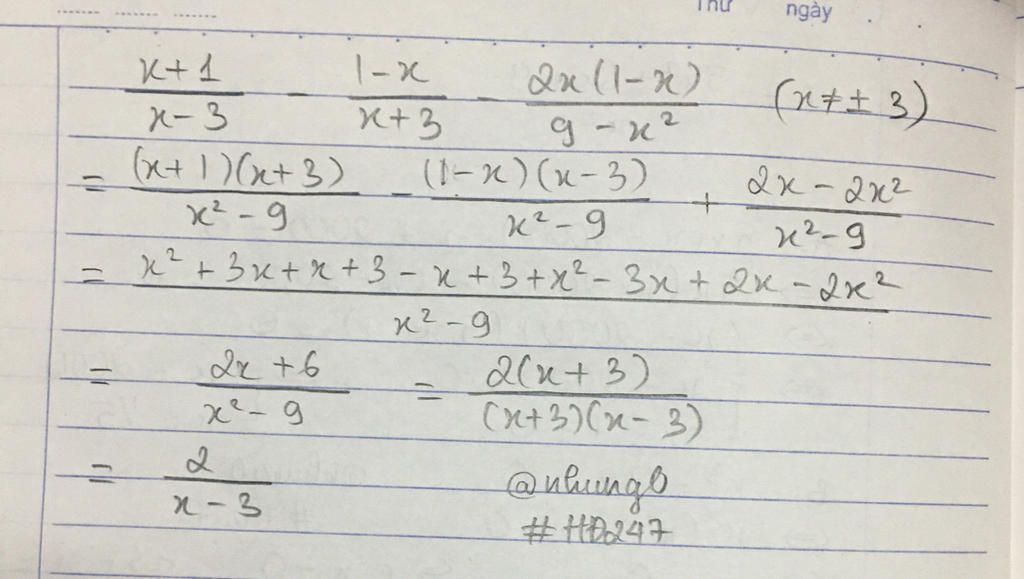 Thứ ngày
\frac{x+1}{x-3} - \frac{1-x}{x+3} - \frac{2x(1-x)}{9-x^2} (x ≠ ± 3)
= \frac{(x+1)(x+3)}{x^2-9} - \frac{(1-x)(x-3)}{x^2-9} + \frac{2x-2x^2}{x^2-9}
= \frac{x^2+3x+x+3-x+3+x^2-3x+2x-2x^2}{x^2-9}
= \frac{2x+6}{x^2-9} = \frac{2(x+3)}{(x+3)(x-3)}
= \frac{2}{x-3} @nhungb
#HĐ247